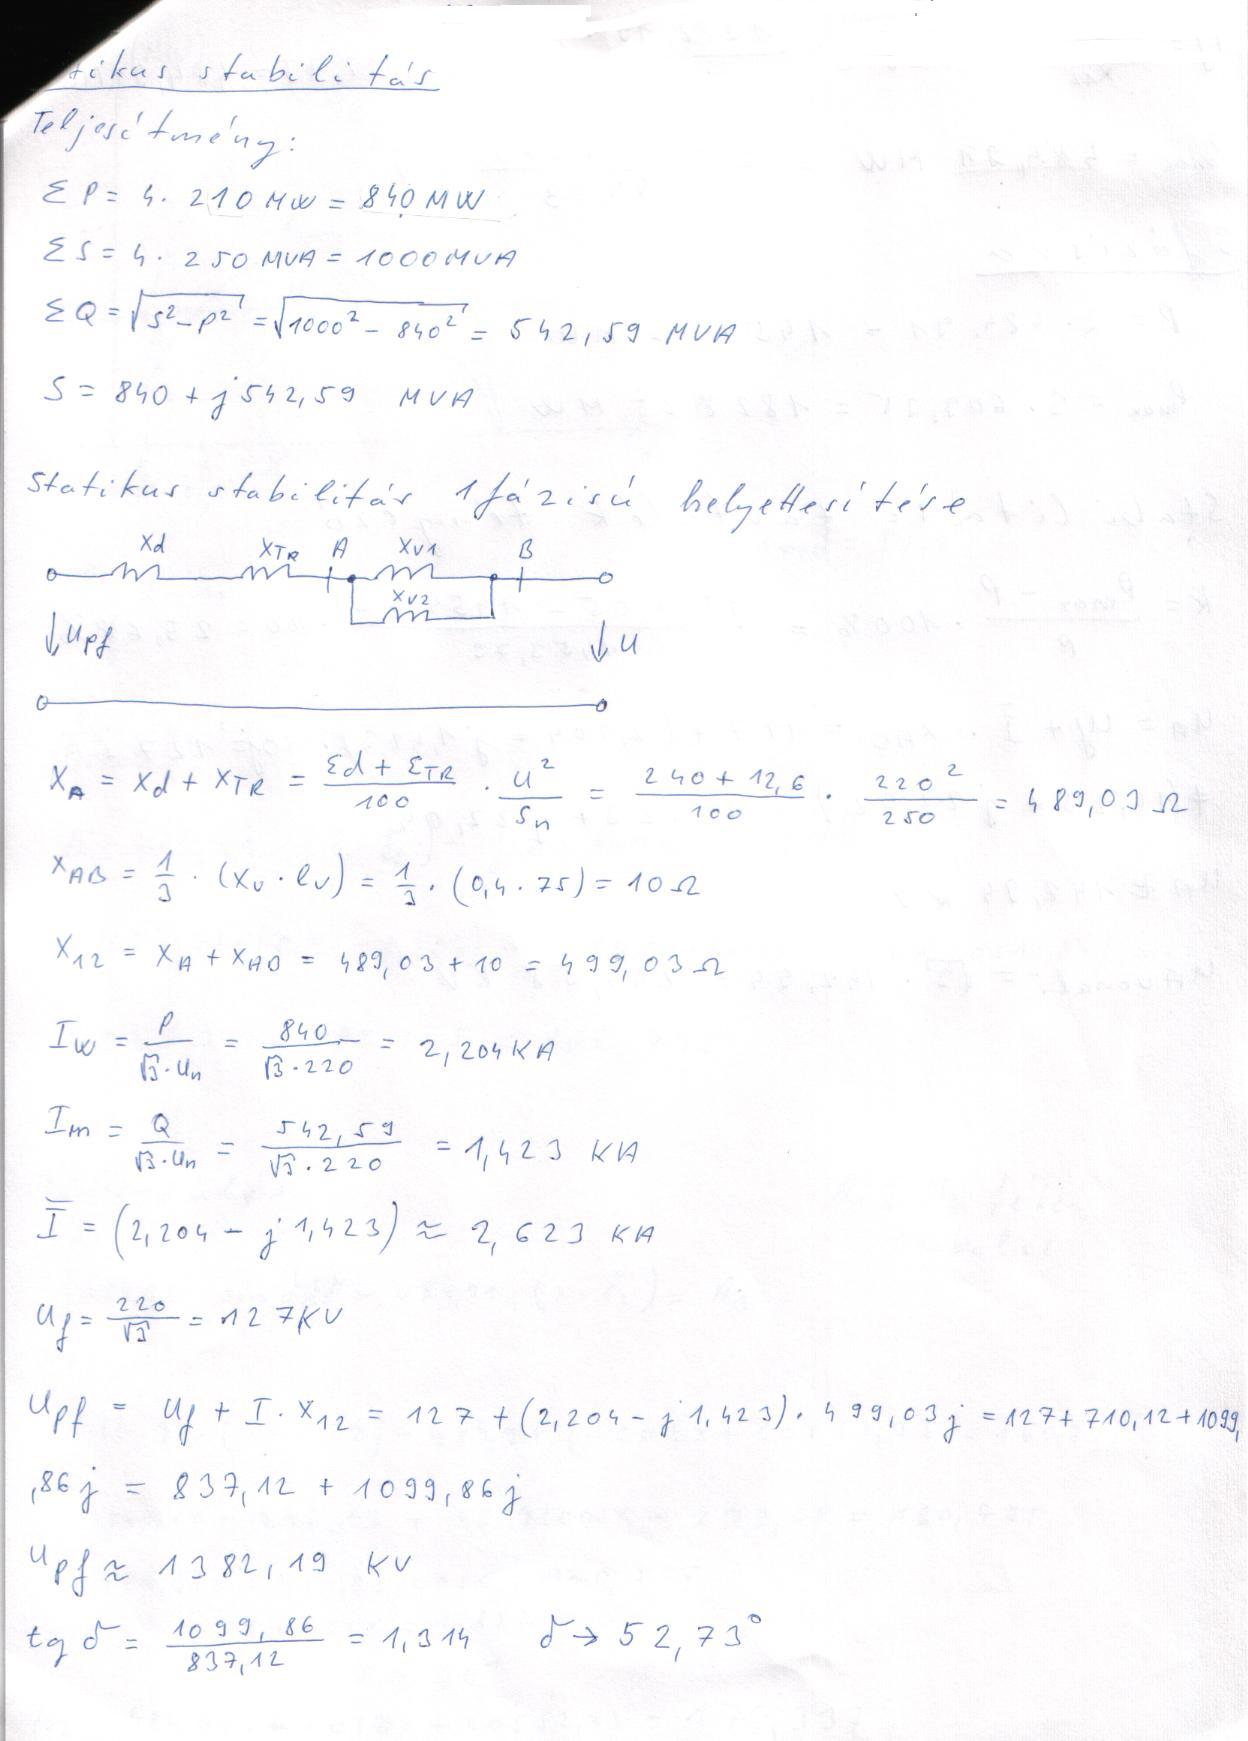 tikus stabilitás
Teljesítmény:
ΣP = 4 · 210 MW = 840 MW
ΣS = 4 · 250 MVA = 1000 MVA
ΣQ = √(S² - P²) = √(1000² - 840²) = 542,59 MVA
S = 840 + j542,59 MVA
Statikus stabilitás 1 fázisú helyettesítése
Xd XTR A XV1 B
XV2
Upf U
XA = Xd + XTR = (Ɛd + ƐTR)/100 · U²/Sn = (240 + 12,6)/100 · 220²/250 = 489,03 Ω
XAB = 1/3 · (Xv · lv) = 1/3 · (0,4 · 75) = 10 Ω
X12 = XA + XAB = 489,03 + 10 = 499,03 Ω
Iw = P/(√3 · Un) = 840/(√3 · 220) = 2,204 KA
Im = Q/(√3 · Un) = 542,59/(√3 · 220) = 1,423 KA
I = (2,204 - j 1,423) ≈ 2,623 KA
Uf = 220/√3 = 127 KV
Upf = Uf + I · X12 = 127 + (2,204 - j 1,423) · 499,03j = 127 + 710,12 + 1099,
,86j = 837,12 + 1099,86j
Upf ≈ 1382,19 KV
tg δ = 1099,86/837,12 = 1,314 δ → 52,73°